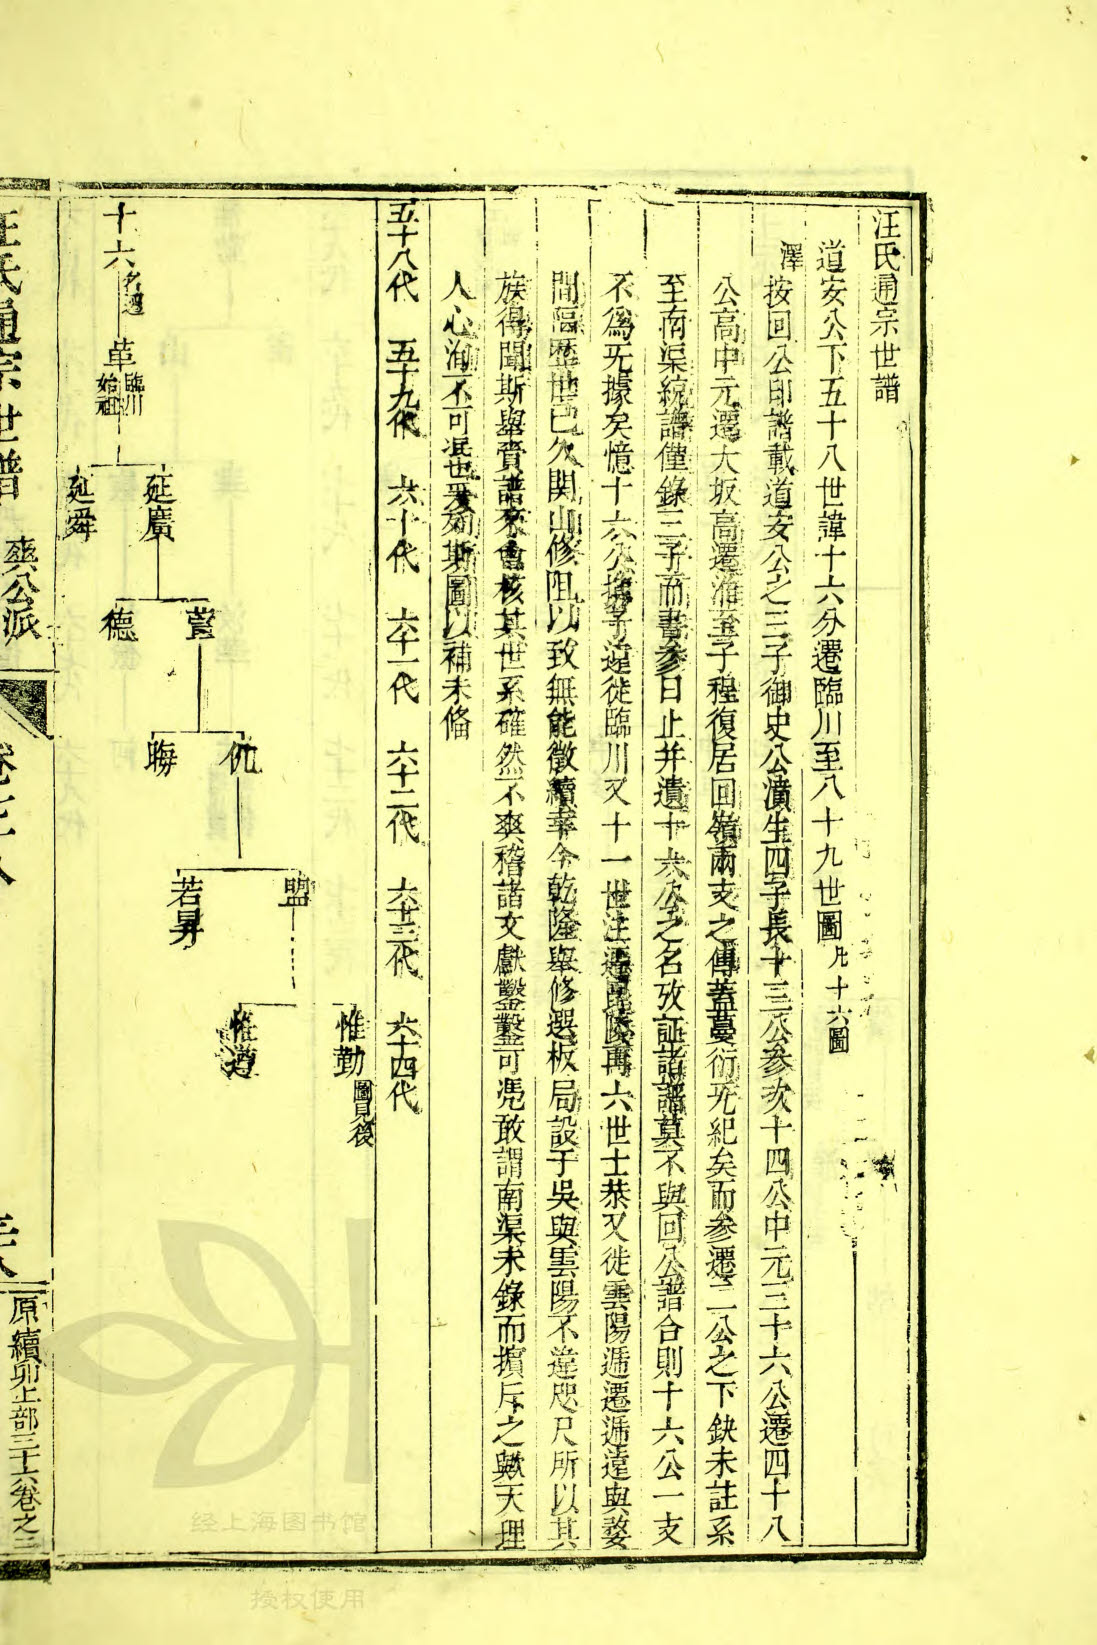 汪氏通宗世譜
道安公下五十八世諱十六分遷臨川至八十九世圖 凡十六圖
澤
按回公印譜載道安公之三子御史公濆生四子長十三公參次十四公中元三十六公遷四十八
公高中元遷大坂高遷淮至子程復居回嶺兩支之傳蓋蔓衍无紀矣而參遷二公之下缺未註系
至南渠統譜僅錄三子而書參曰止并遺十六公之名攷証諸譜莫不與回公譜合則十六公一支
不爲无據矣憶十六公 子 徙臨川又十一世注遷 陵再六世士恭又徙雲陽遞遷遞遠與婺
間隔歴世已久関山修阻以致無能徵續幸今乾隆舉修選板局設于吳與雲陽不違咫尺所以其
族得聞斯舉賫譜來會核其世系確然不爽稽諸文獻鑿鑿可凴敢謂南渠未錄而擯斥之歟天理
人心洵不可泯也爰列斯圖以補未俻
五十八代 五十九代 六十代 六十一代 六十二代 六十三代 六十四代
十六 名遵 革 臨川始祖
延廣
延舜
萱
德
仇
晦
盟
若昇
惟勤 圖見後
惟遵
汪氏通宗世譜 爽公派 卷之十八
原續卯上部三十六卷之三
经上海图书馆
授权使用